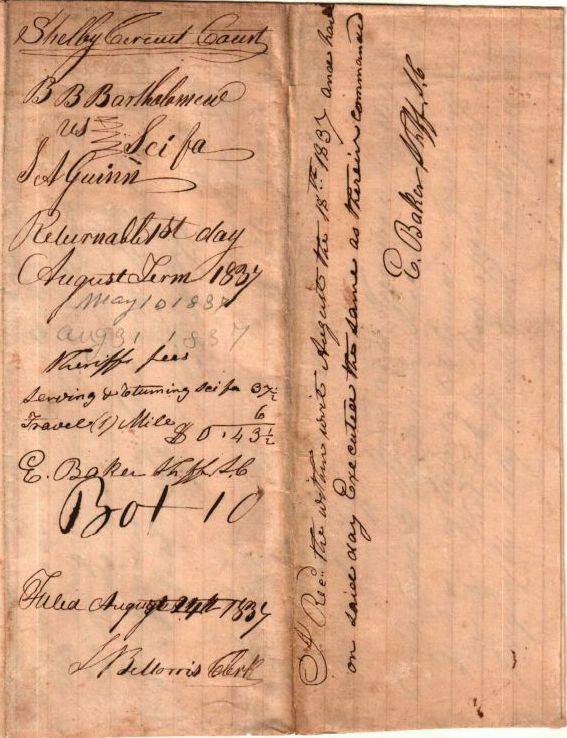 Shelby Circuit Court
B B Bartholomew
vs Sci fa
S A Guinn
Returnable 1st day
August Term 1837
May 10 1837
Aug 31 1837
Sheriffs fees
Serving & returning sci fa 37½
Travel (1) Mile 6
$ 0.43½
E. Baker Shff. S.C
Box 10
Filed August 24th 1837
Clerk
I Recd. the within writ August the 18th 1837 and have
on said day Executed the same as therein commanded
E. Baker Shff. S.C